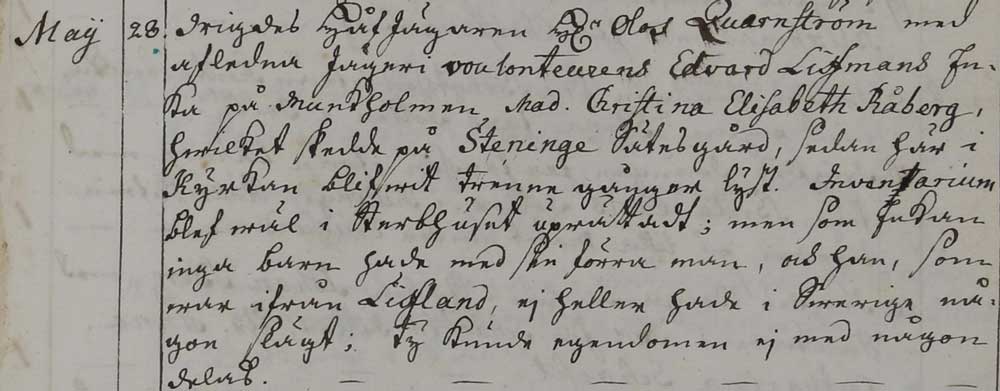 Maÿ 28. Wigdes Håf Jägaren H:r Olof Quarnström med
afledna Jägeri voulonteurens Edvard Liffmans En-
ka på Munkholmen, Mad. Christina Elisabeth Råberg,
hwilket skedde på Steninge Sätesgård, sedan här i
Kyrkan blifwit trenne gånger lyst. Inventarium
blef wäl i Sterbhuset uprättadt; men som Enkan
inga barn hade med sin förra man, och han, som
war ifrån Liffland, ej heller hade i Swerige nå-
gon slägt; ty kunde egendomen ej med någon
delas.